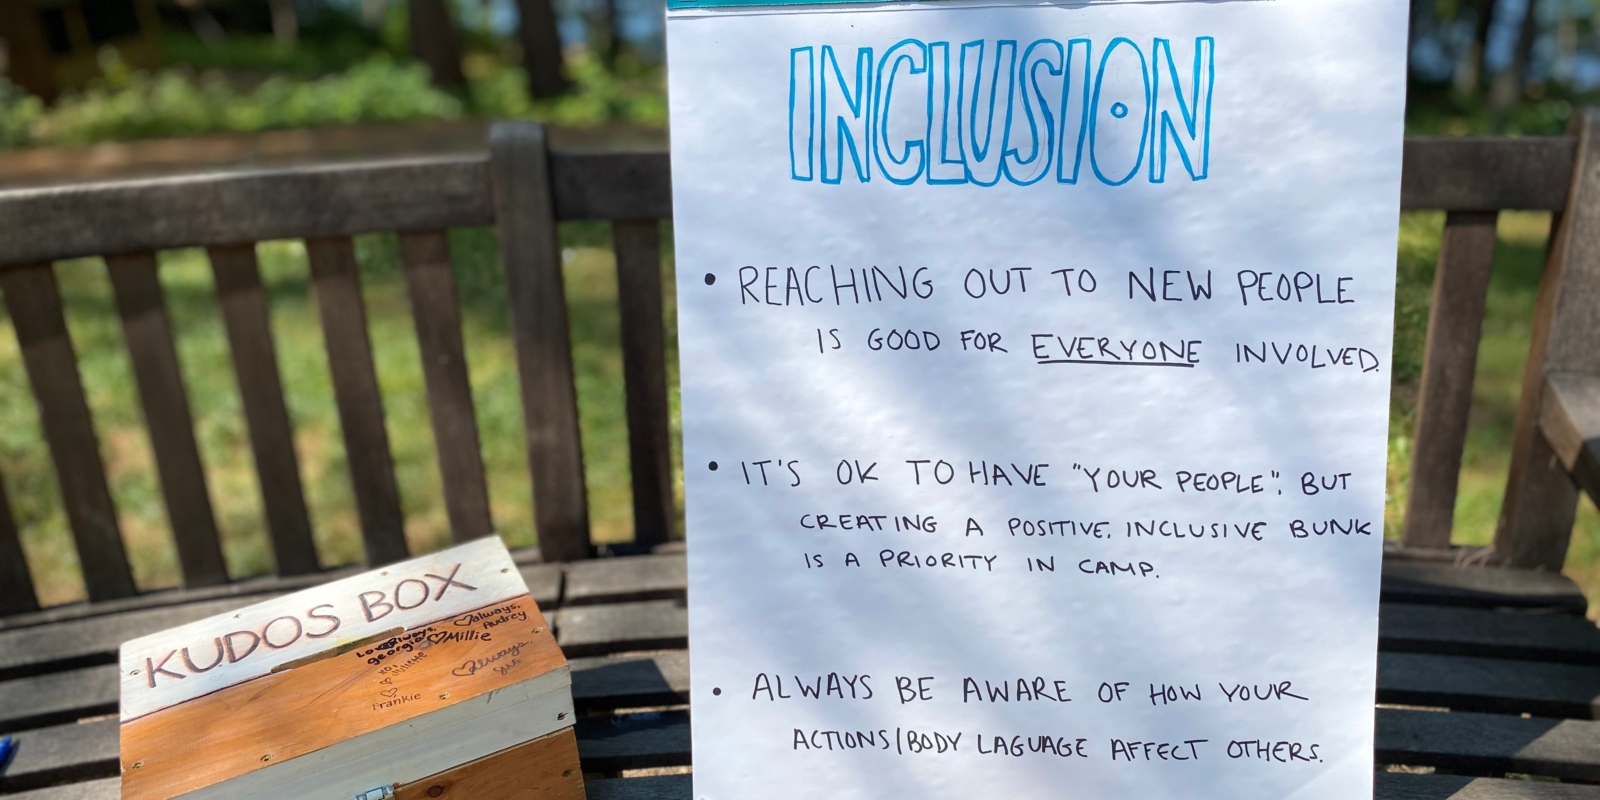 INCLUSION
• REACHING OUT TO NEW PEOPLE
IS GOOD FOR EVERYONE INVOLVED.
• IT'S OK TO HAVE "YOUR PEOPLE", BUT
CREATING A POSITIVE, INCLUSIVE BUNK
IS A PRIORITY IN CAMP.
• ALWAYS BE AWARE OF HOW YOUR
ACTIONS/BODY LAGUAGE AFFECT OTHERS.
KUDOS BOX
always,
Audrey
georgia
Millie
always
Frankie